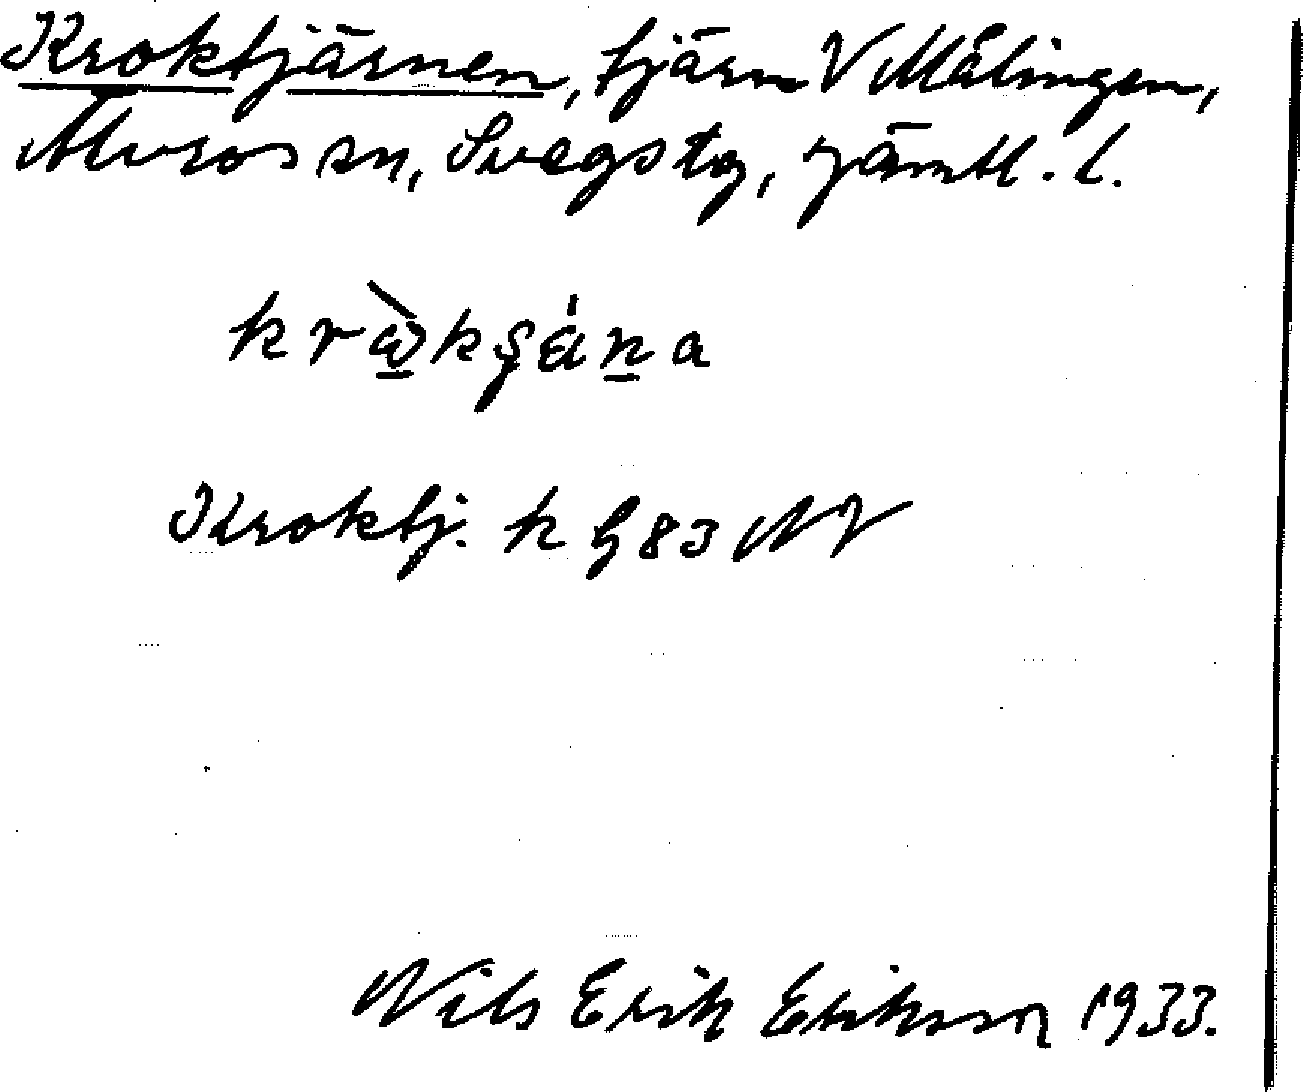 Kroktjärnen, tjärn V Målingen,
Älvros sn, Svegs tg, Jämtl. l.
Kroktj. k h 83 NV
Nils Erik Eriksson 1933.